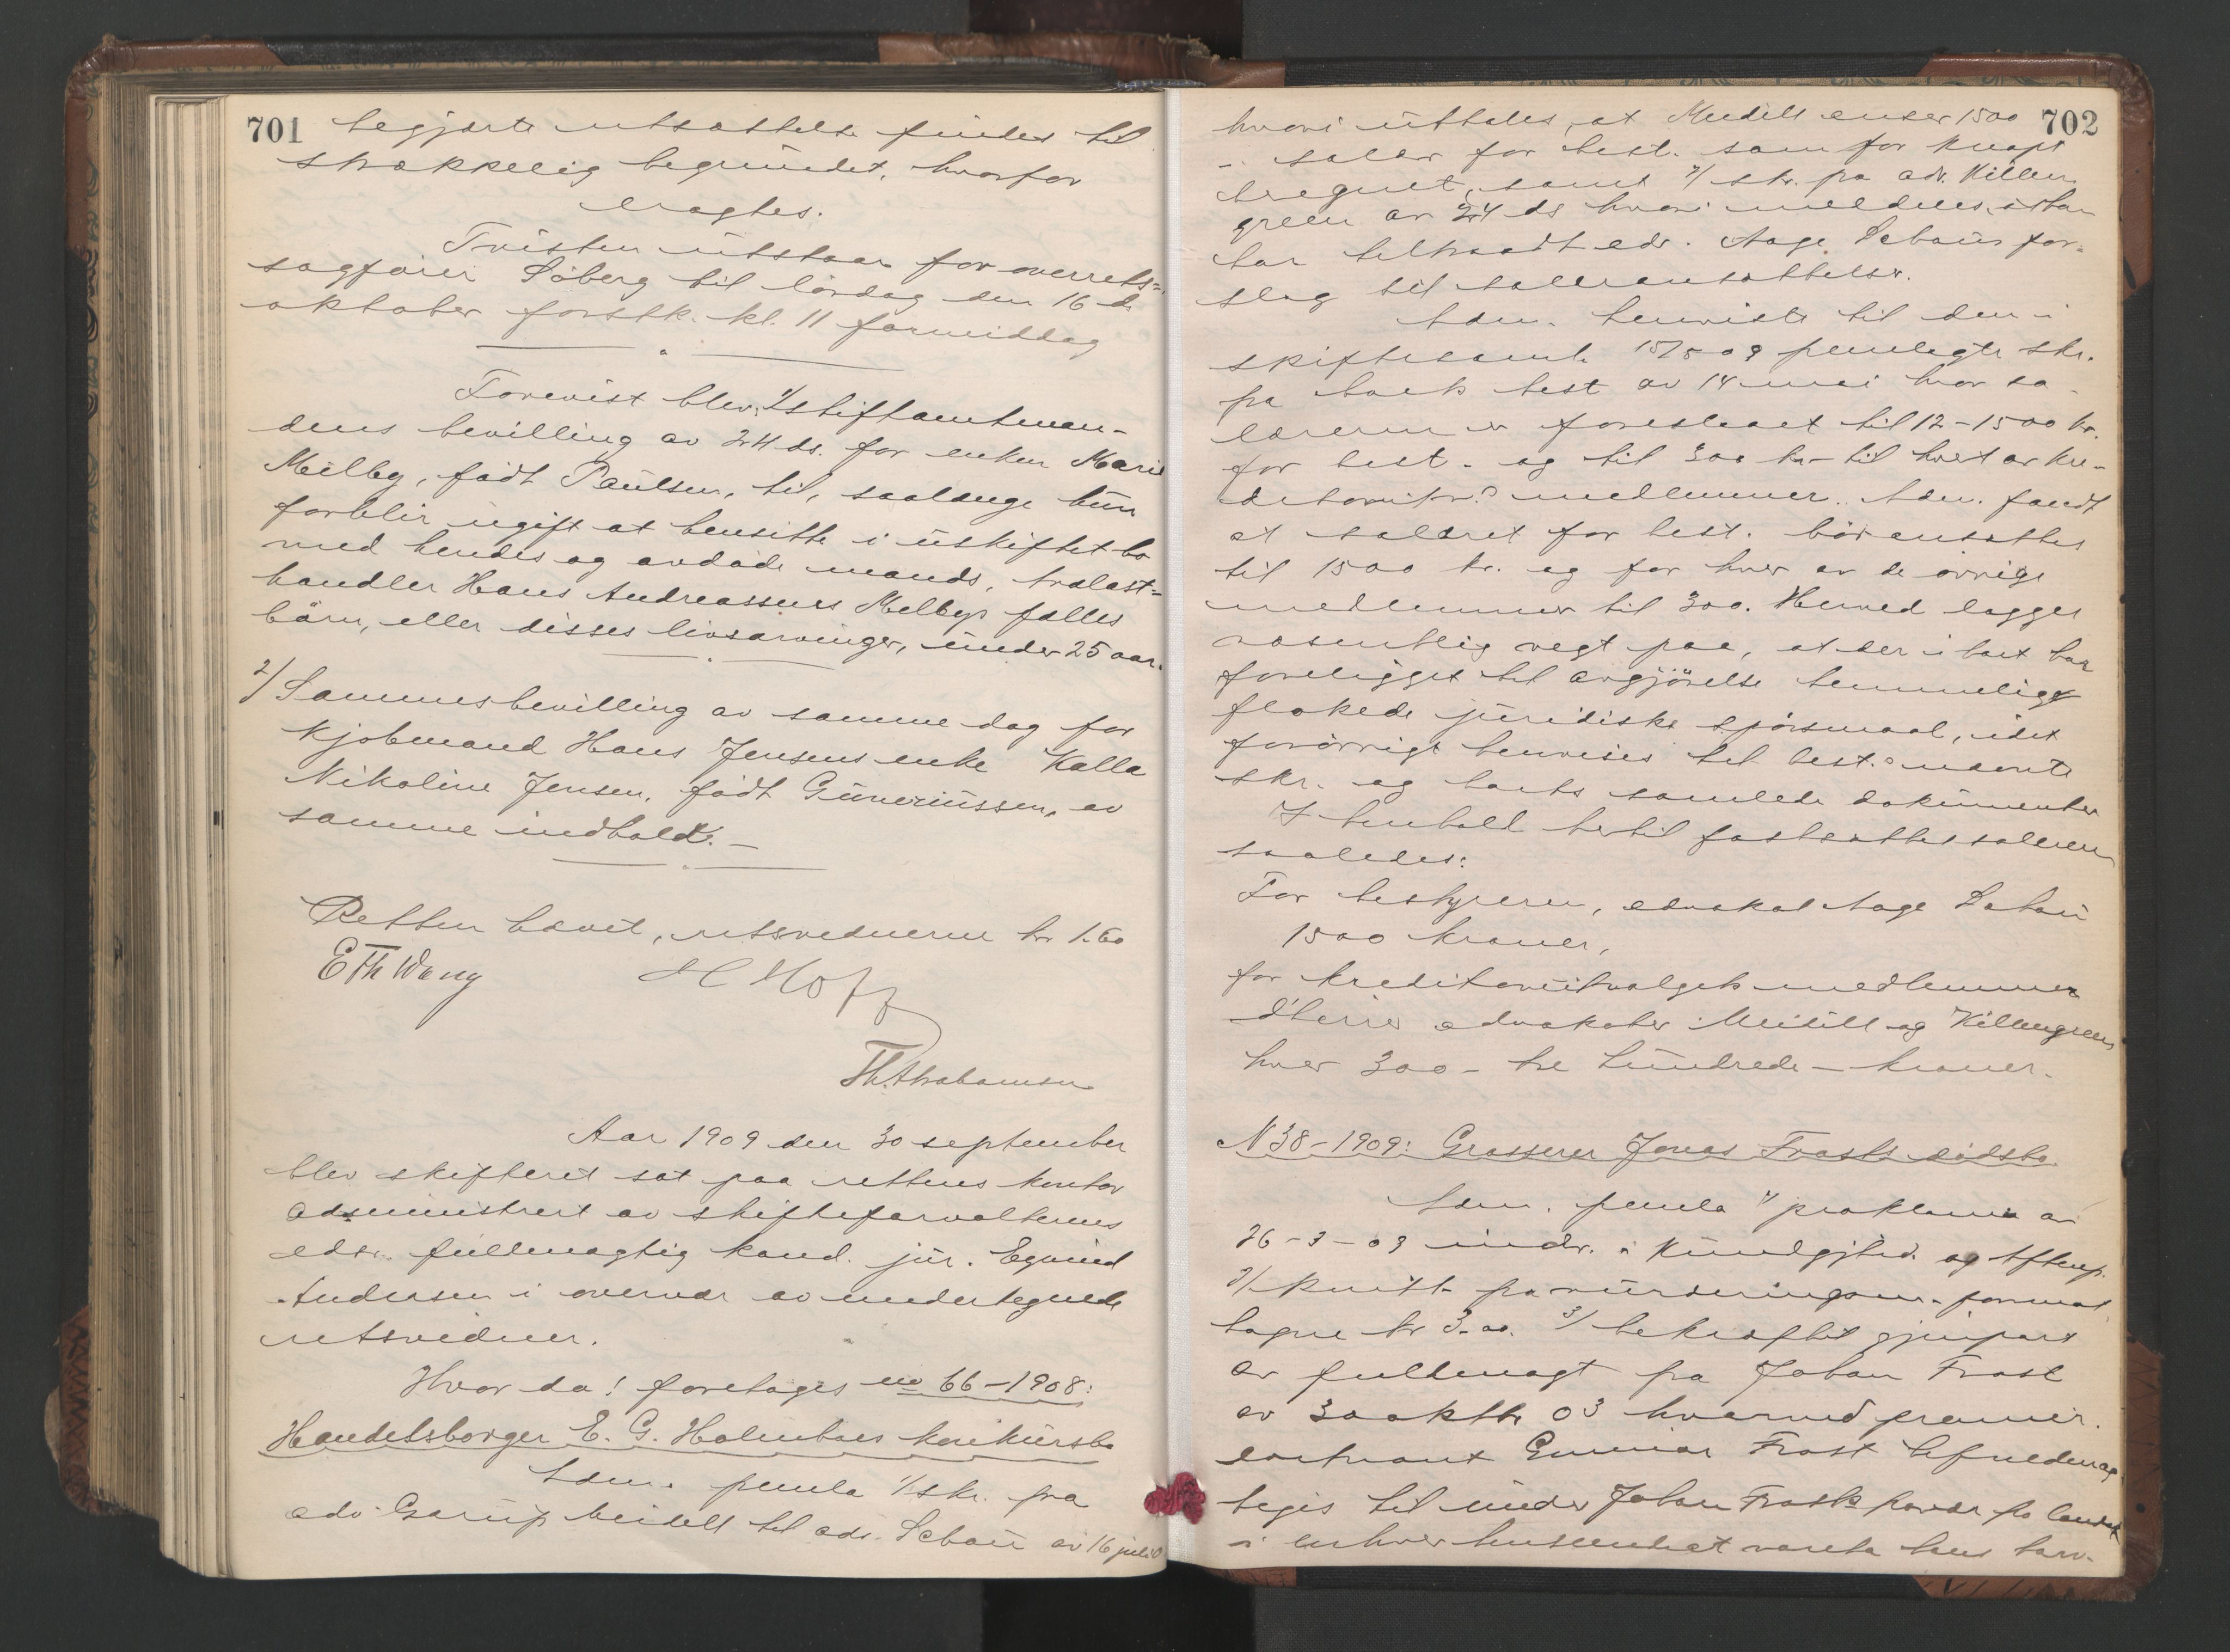 701
begjærte utsættelse findes til
strækkelig begrundet, hvorfor
eragtes.
Tvisten utstaar for overrets-
sagfører Söberg til lördag den 16 de
oktober förstk. kl. 11 formiddag
Forevist blev: 1/ stiftamtman-
dens bevilling av 24 ds. for enken Marie
Melby, födt Paulsen, til, saalænge hun
forblir ugift at hensitte i uskiftet bo
med hendes og avdöde mands, trælast-
handler Hans Andreassens Melbys fælles
börn, eller disses livsarvinger, under 25 aar.
2/ Sammes bevilling av samme dag for
kjöbmand Hans Jensens enke Kalla
Nikoline Jensen, födt Guneriussen, av
samme indhold. -
Retten hævet, retsvidnerne kr 1.60
E Th Wang H Hoff
Th. Abrahamsen
Aar 1909 den 30 september
blev skifteret sat paa rettens kontor
administrert av skifteforvalterens
edsv. fuldmægtig kand. jur. Egvind
Andersen i overvær av undertegnede
retsvidner.
Hvor da! foretoges no 66-1908:
Handelsborger E. G. Holmboes konkursbo
Adm. fremla 1/ skr. fra
adv Garup Meidell til adv. Schou av 16 juli
702
hvori uttales, at Meidell anser 1500
i salær for best. som for knapt
beregnet, samt 2/ skr. fra adv. Killen
green av 24 ds hvori meddeles, at han
har tiltraadt adv. Aage Schous for-
slag til salæransættelse.
Adm. henviste til den i
skiftesaml. 15/5 09 fremlagte skr.
fra boets best av 14 mai hvor sa-
lærerne er foreslaaet til 12-1500 kr.
for best. og til 300 kr - til hvert av kre-
ditorutv.s medlemmer. Adm. fandt
at salæret for best. bör ansættes
til 1500 kr. og for hver av de övrige
medlemmer til 300. Herved lægges
væsentlig vegt paa, at der i boet har
foreligget til avgjörelse temmelig
flokede juridiske spörsmaal, idet
forövrigt henvises til best.s nævnte
skr. og boets samlede dokumenter
I henhold hertil fastsættes salærerne
saaledes:
For bestyreren, advokat Aage Schou
1500 kroner,
for kreditorutvalgets medlemmer
d'herrer advokater Meidell og Killengreen
hver 300 - tre hundrede - kroner.
N 38-1909: Grosserer Jonas Frosts dödsbo
Adm. fremla 1/ proklama av
26-3-09 indr. i Kundgjtid. og Aftenp.
2/ kvitt. fra vurderingsm. for mot
tagne kr 3.00. 3/ bekræftet gjenpart
av fuldmagt fra Johan Frost
av 30 oktbr 03 hvorved premier.
löitnant Gunnar Frost befuldmæg
tiges til under Johan Frosts fravær fra landet
i enhver henseende at vareta hans tarv.